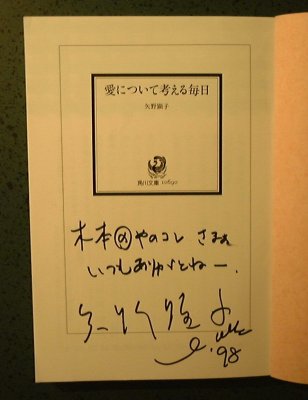 愛について考える毎日
矢野顕子
角川文庫 10690
木本㋱やのコレ さま
いつもありがとねー.
矢野顕子
'98